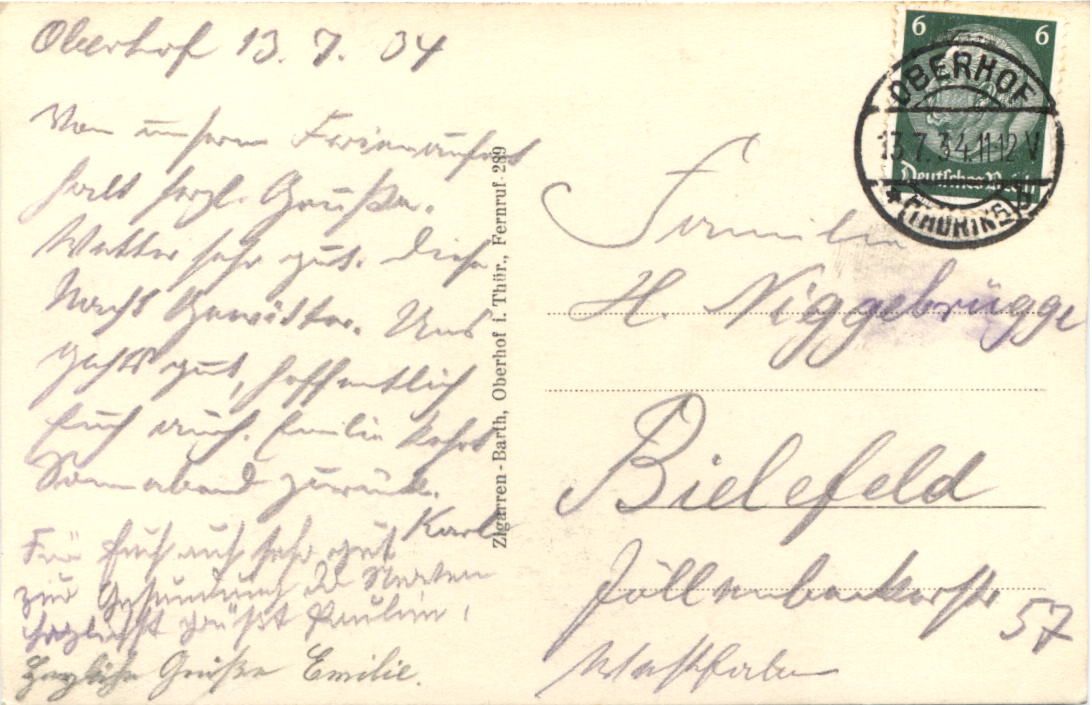 Oberhof 13. 7. 34
Von unserm Ferienaufent
halt herzl. Grüße.
Wetter sehr gut. Diese
Nacht Gewitter. Uns
gehts gut, hoffentlich
Euch auch. Emilie kehrt
Sonnabend zurück.
Karl
Für Euch auch sehr gut
zur Gesundung der Nerven
herzlichst grüßt Pauline,
Herzliche Grüße Emilie.
Zigarren-Barth, Oberhof i. Thür., Fernruf 289
6 6
Deutsches Reich
OBERHOF
13.7.34.11-12 V
(THÜRING)
Familie
H. Niggebrügge
Bielefeld
Jöllenbeckerstr
57
Westfalen